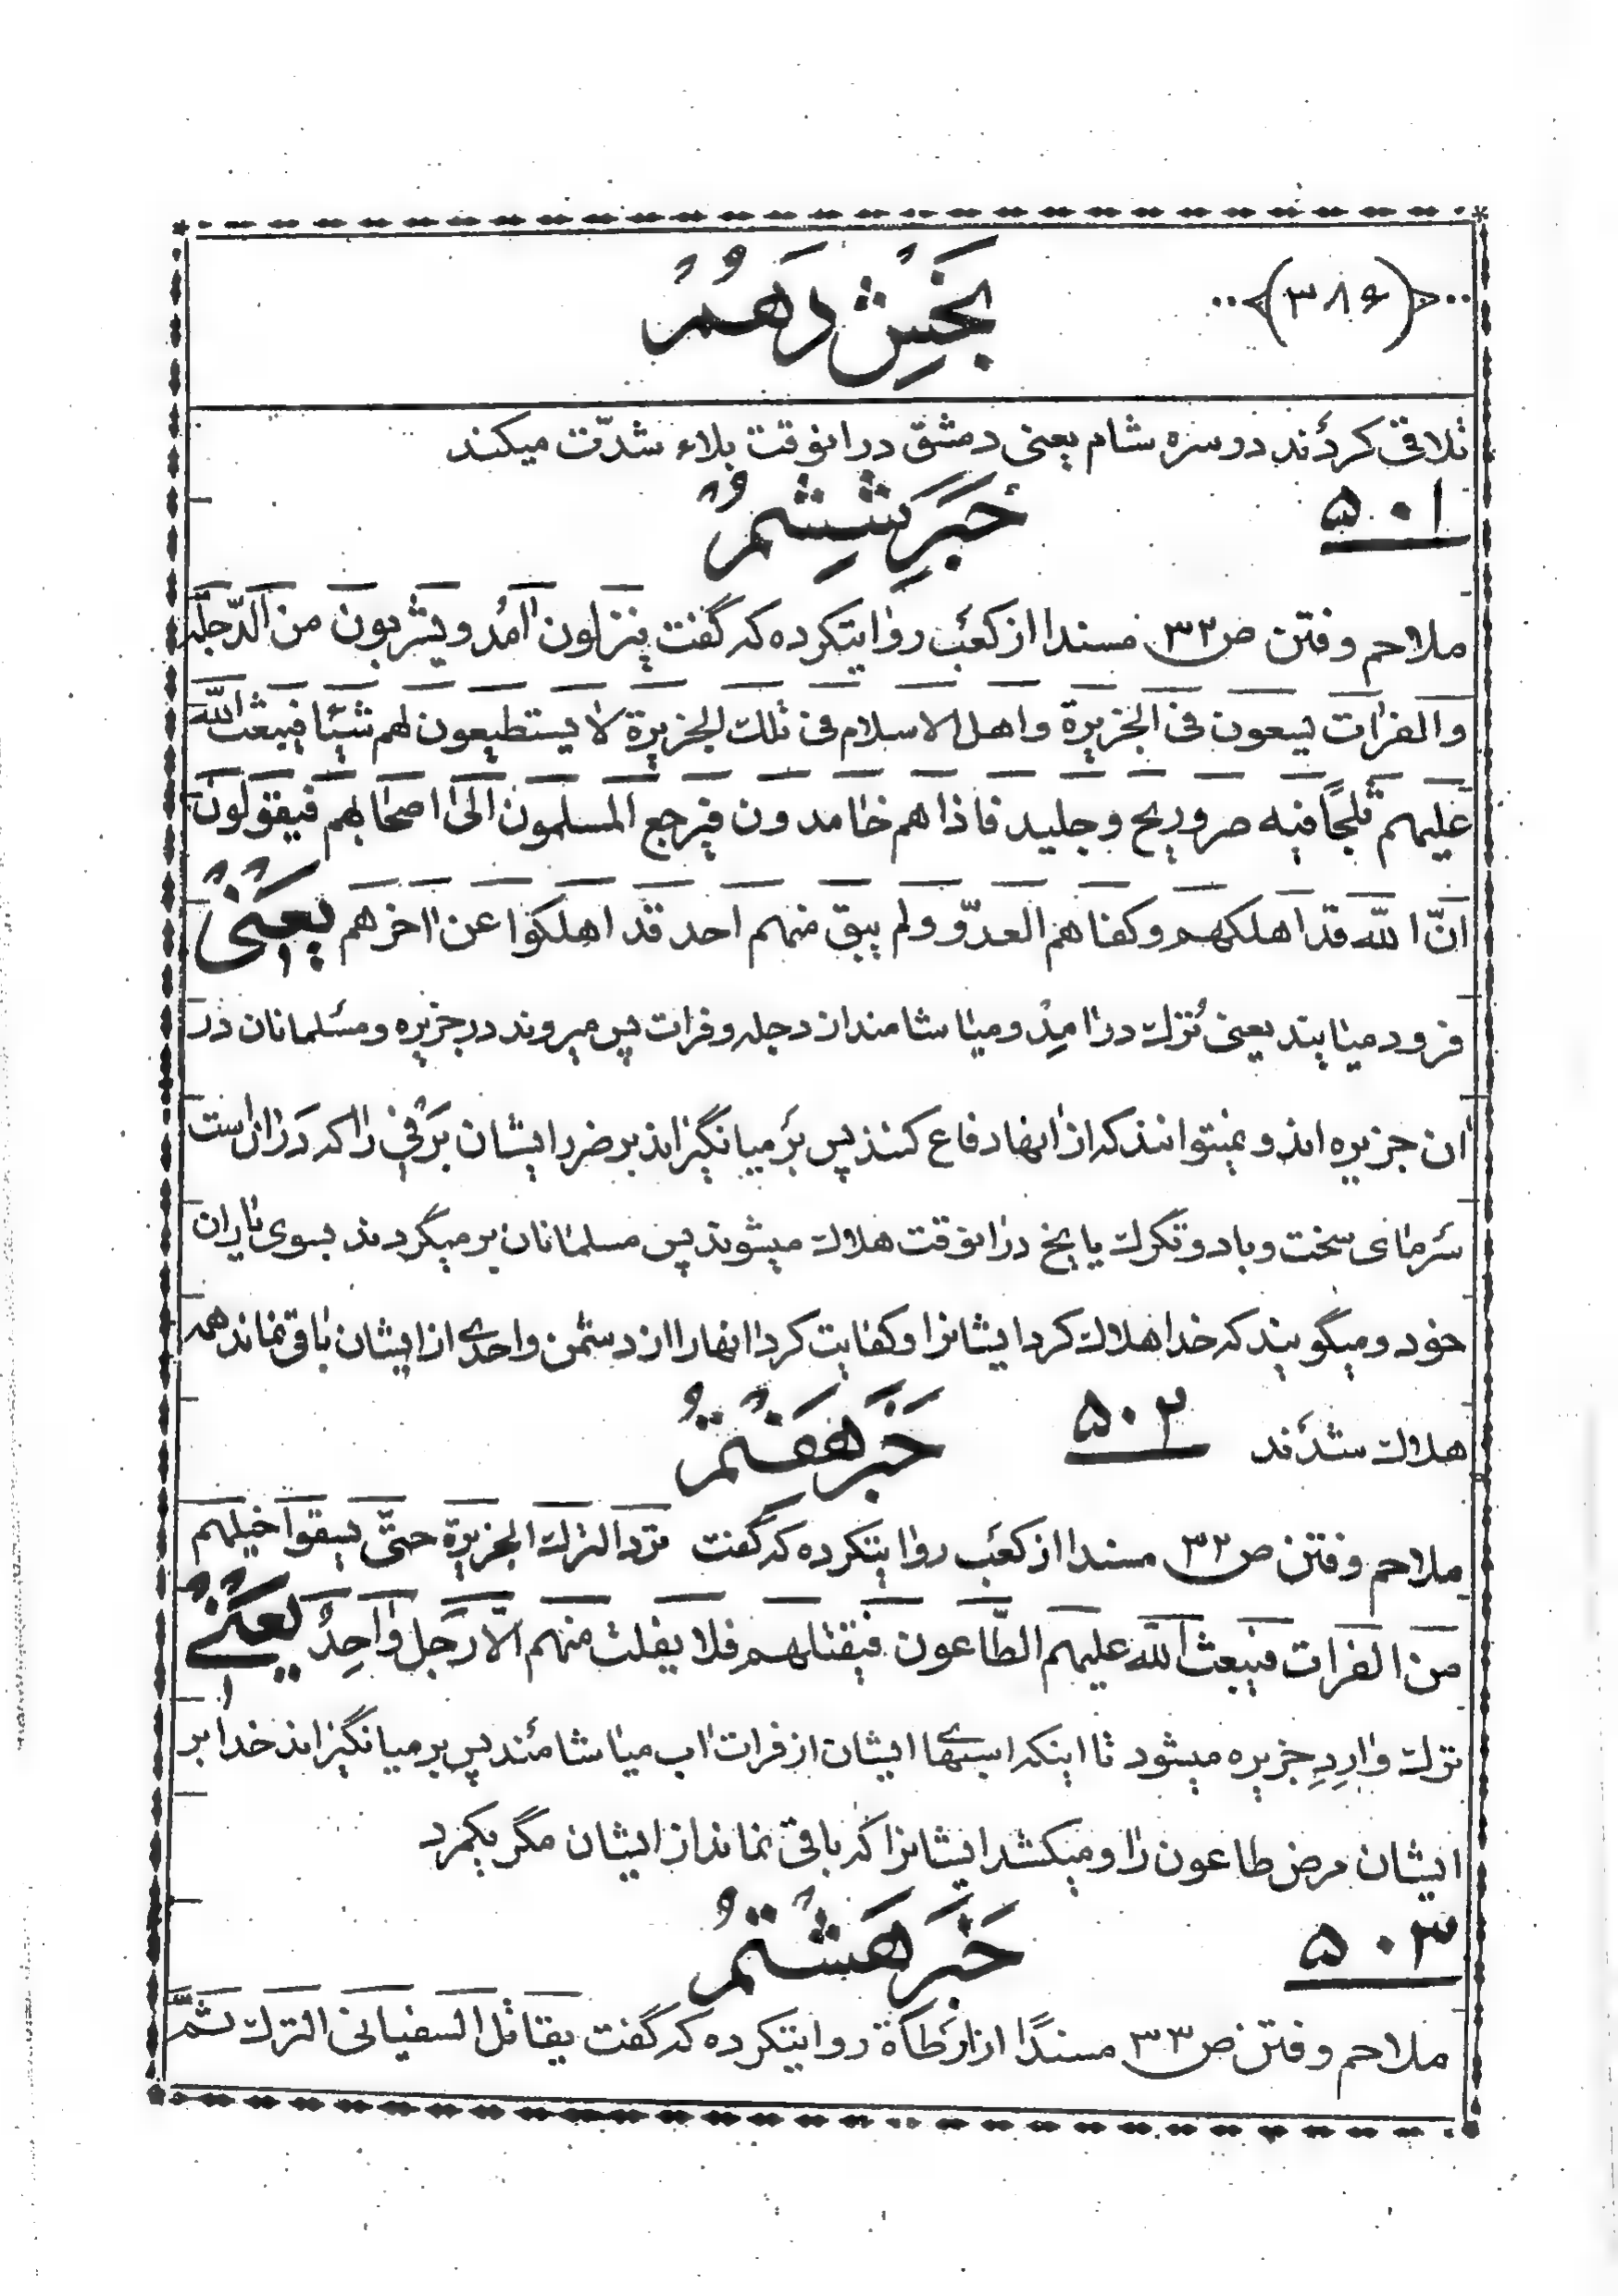 بَخْشِ دَهُمْ
(۳۸۶)
تلاقی کردند در سره شام یعنی دمشق در انوقت بلاء شدّت میکند
۵۰۱
خَبَرِ شِشُمْ
ملاحم وفتن ص۳۲ مسندا از کعب روایتکرده که گفت ینزلون اامد ویشربون من الدّجلة
والفرات یسعون فی الجزیرة واهل الاسلام فی تلك الجزیرة لا یستطیعون لهم شیئا فیبعث الله
علیهم ثلجًا فیه صر وریح وجلید فاذاهم خامدون فیرجع المسلمون الی اصحابهم فیقولون
انّ الله قد اهلکهم وکفاهم العدّو ولم یبق منهم احد قد اهلکوا عن ااخرهم یعنی
فرود میایند یعنی تُرك در اامِد ومیاشامند از دجله وفرات پس میروند در جزیره ومسلمانان در
ان جزیره اند ونمیتوانند که از انها دفاع کنند پس بر میانگیزاند بر ضرر ایشان برفی را که در ان است
سرمای سخت وباد وتگرك یا یخ در انوقت هلاك میشوند پس مسلمانان بر میگردند بسوی یاران
خود ومیگویند که خدا هلاك کرد ایشانرا وکفایت کرد انها را از دشمن واحدی از ایشان باقی نماند همه
هلاك شدند
۵۰۲
خَبَرِ هَفْتُمْ
ملاحم وفتن ص۳۲ مسندا از کعب روایتکرده که گفت ترد الترك الجزیرة حتّی یسقوا خیلهم
من الفرات فیبعث الله علیهم الطّاعون فیقتلهم فلا یفلت منهم الّا رجل واحِدٌ یعنی
ترك واردِ جزیره میشود تا اینکه اسبهای ایشان از فرات اب میاشامند پس بر میانگیزاند خدا بر
ایشان مرض طاعون را ومیکشد ایشانرا که باقی نماند از ایشان مگر یکمرد
۵۰۳
خَبَرِ هَشْتُمْ
ملاحم وفتن ص۳۳ مسندًا از ارطاة روایتکرده که گفت یقاتل السفیانی الترك ثمّ